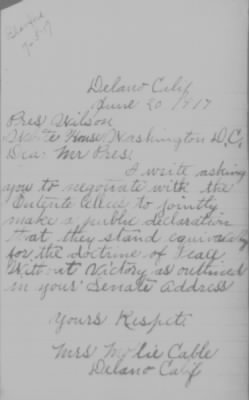 Delano Calif
June 20 1917
Pres Wilson
White House, Washington D.C.
Dear Mr Pres.
I write asking
you to negotiate with the
Entente Allies to jointly
make a public declaration
that they stand
for the doctrine of Peace
Without Victory as outlined
in your Senate Address
Yours Respct.
Mrs Mylie Cable
Delano Calif